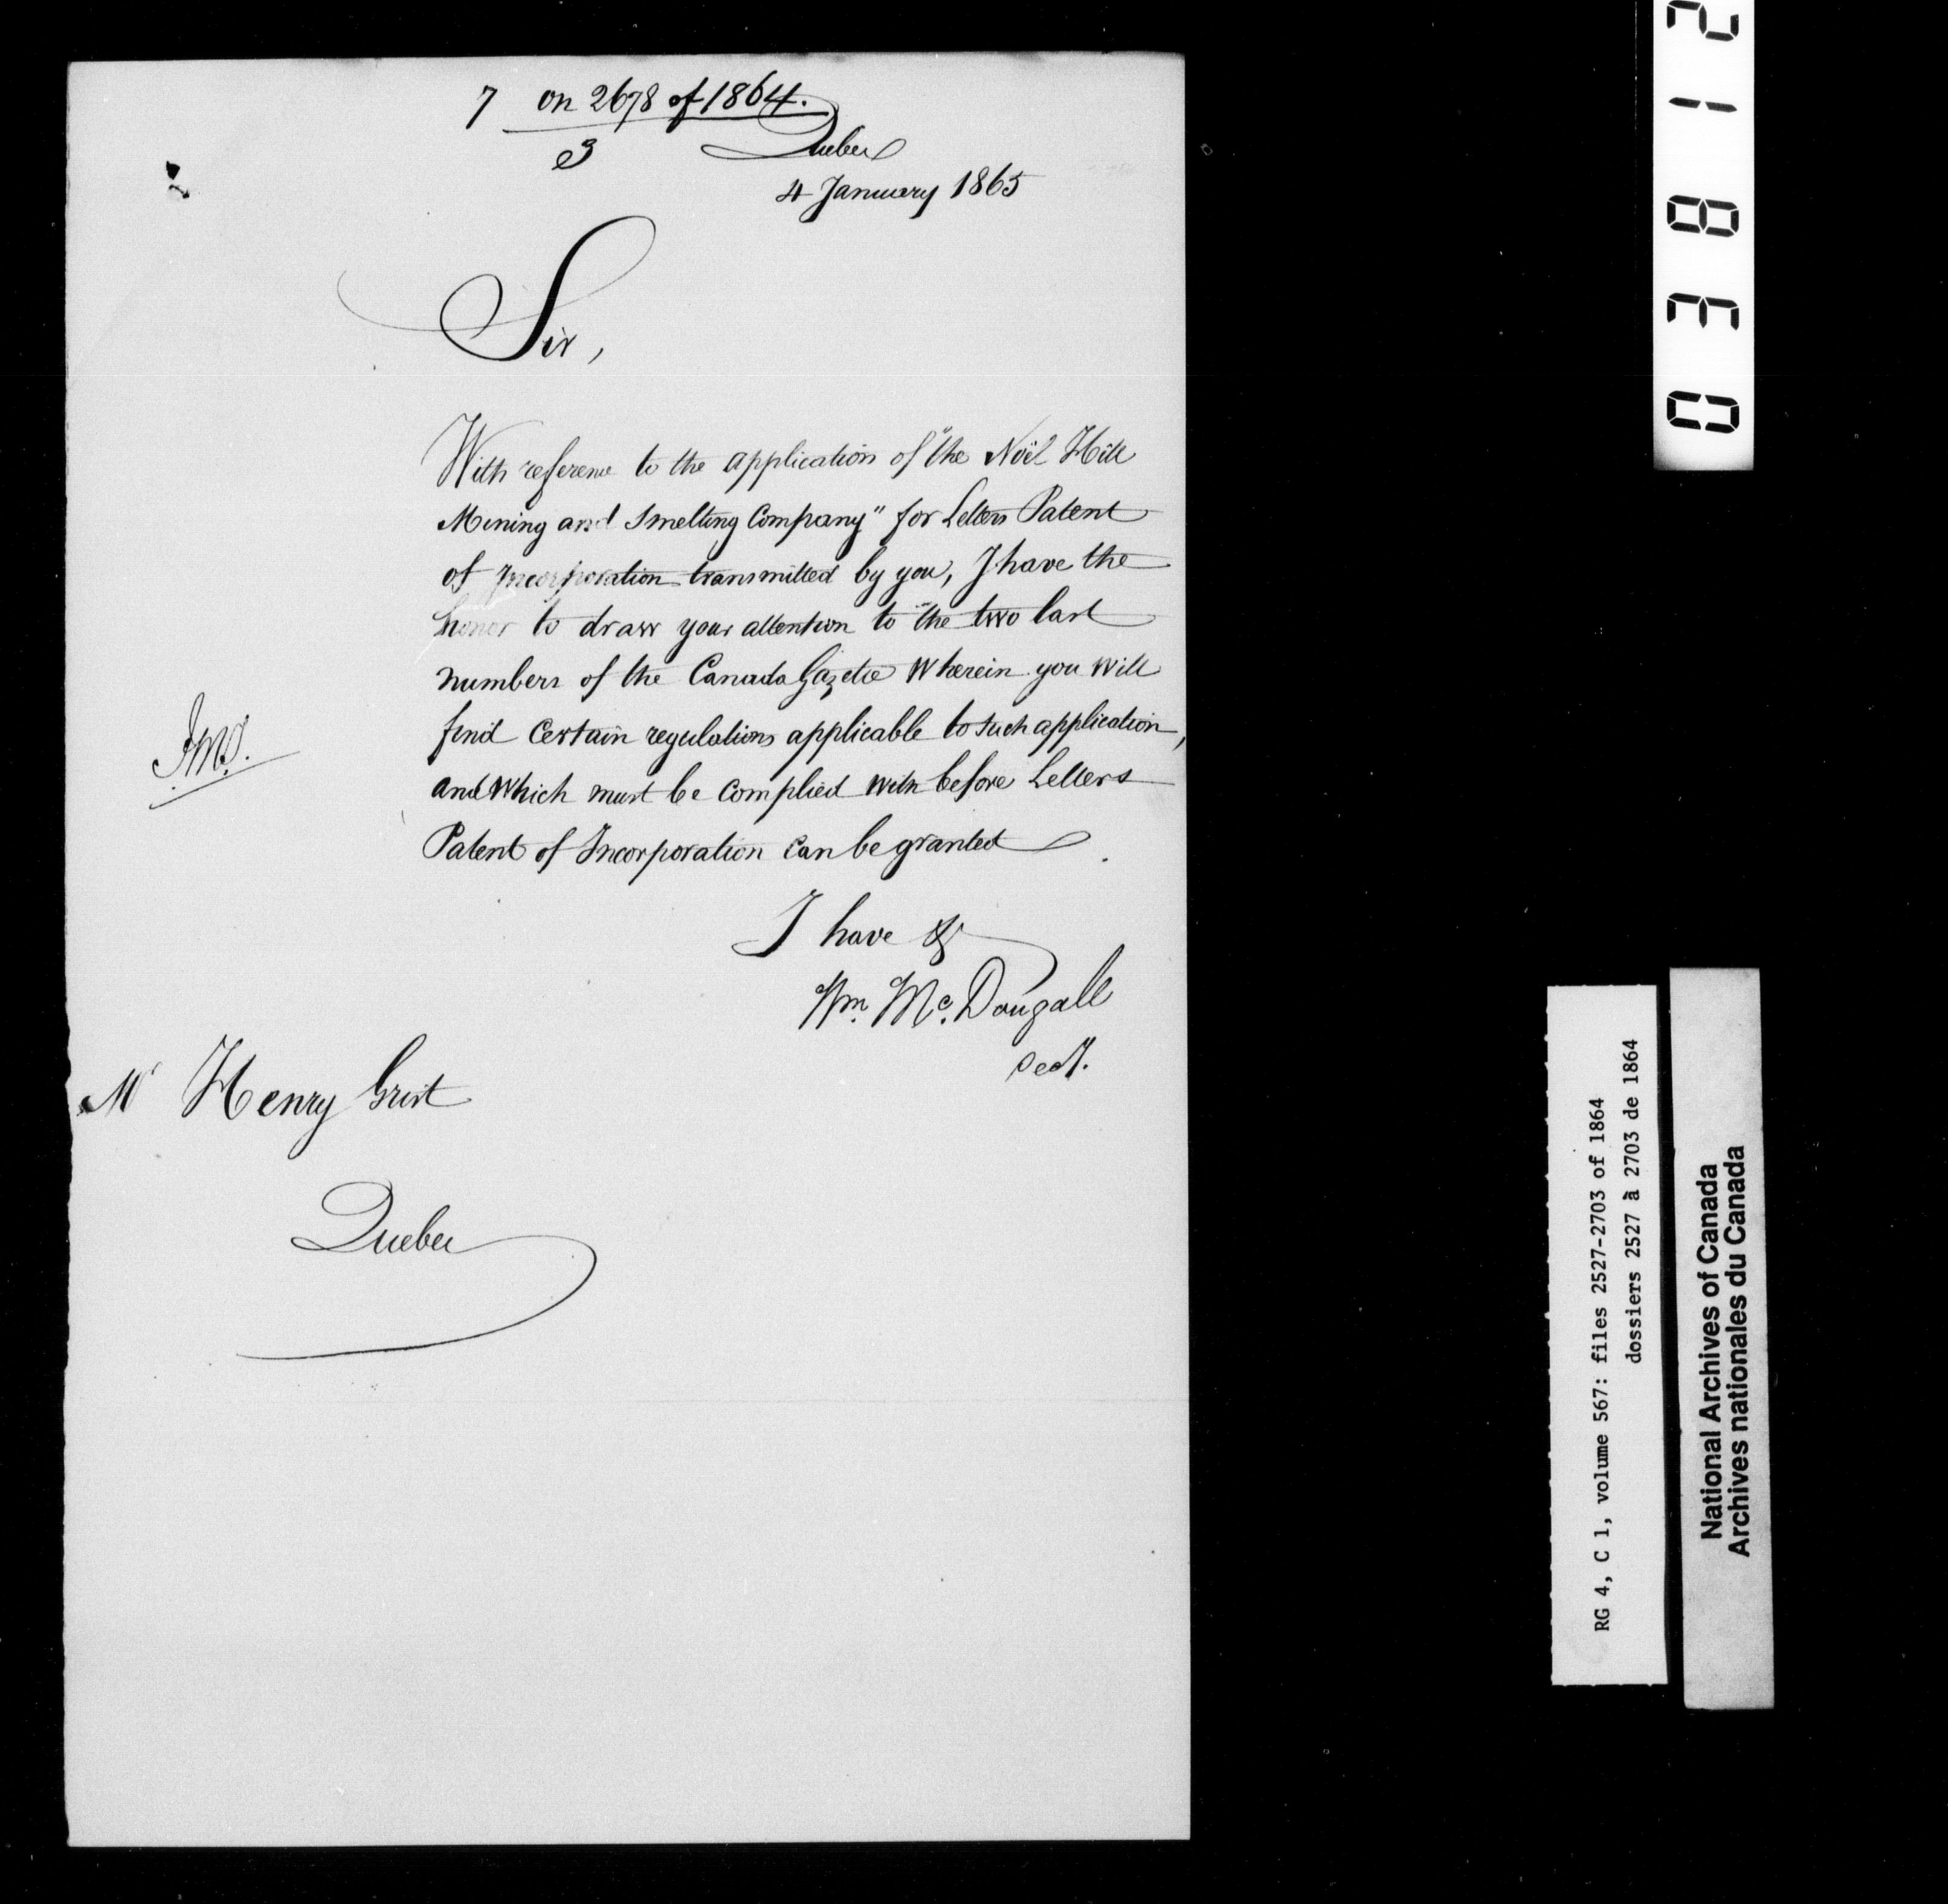 7 on 2678 of 1864.
3
Quebec
4 January 1865
Sir,
With reference to the application of "the Noël Hill
Mining and Smelting Company" for Letters Patent
of Incorporation transmitted by you, I have the
honor to draw your attention to the two last
numbers of the Canada Gazette wherein you will
find certain regulations applicable to such application,
and which must be complied with before Letters
Patent of Incorporation can be granted.
I have &
Wm. Mc.Dougall
Secy.
Mr Henry Grist
Quebec
03812
RG 4, C 1, volume 567: files 2527-2703 of 1864
dossiers 2527 à 2703 de 1864
National Archives of Canada
Archives nationales du Canada